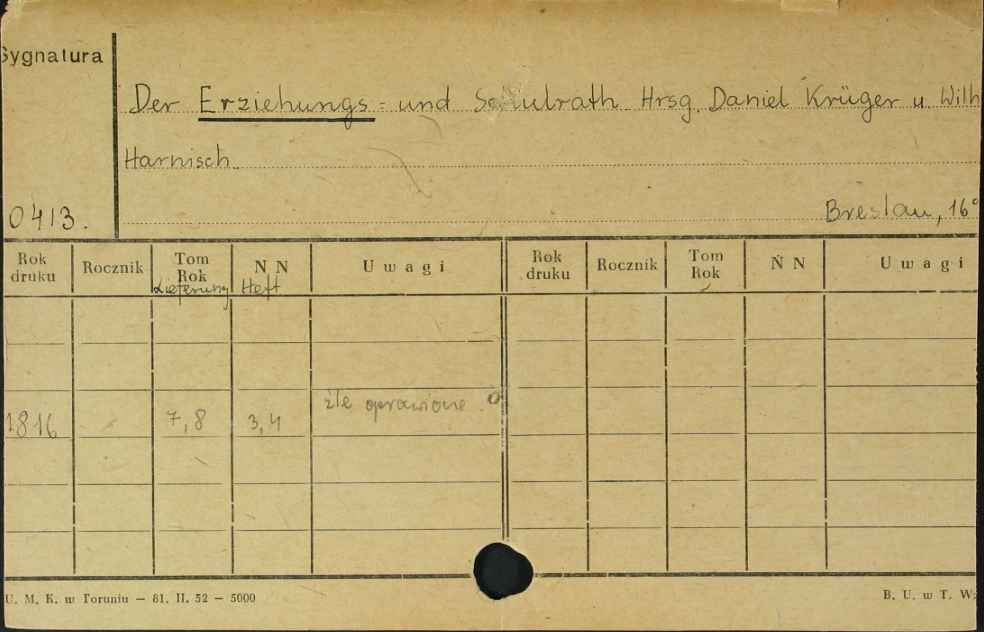 Sygnatura
Der Erziehungs = und Schulrath Hrsg. Daniel Krüger u. Wilh
Harnisch.
0413.
Breslau, 16°
Rok druku Rocznik Tom Rok N N Uwagi Rok druku Rocznik Tom Rok N N Uwagi
Lieferung Heft
1816 7, 8 3, 4 źle oprawione
U. M. K. w Toruniu — 81. II. 52 — 5000
B. U. w T. W.